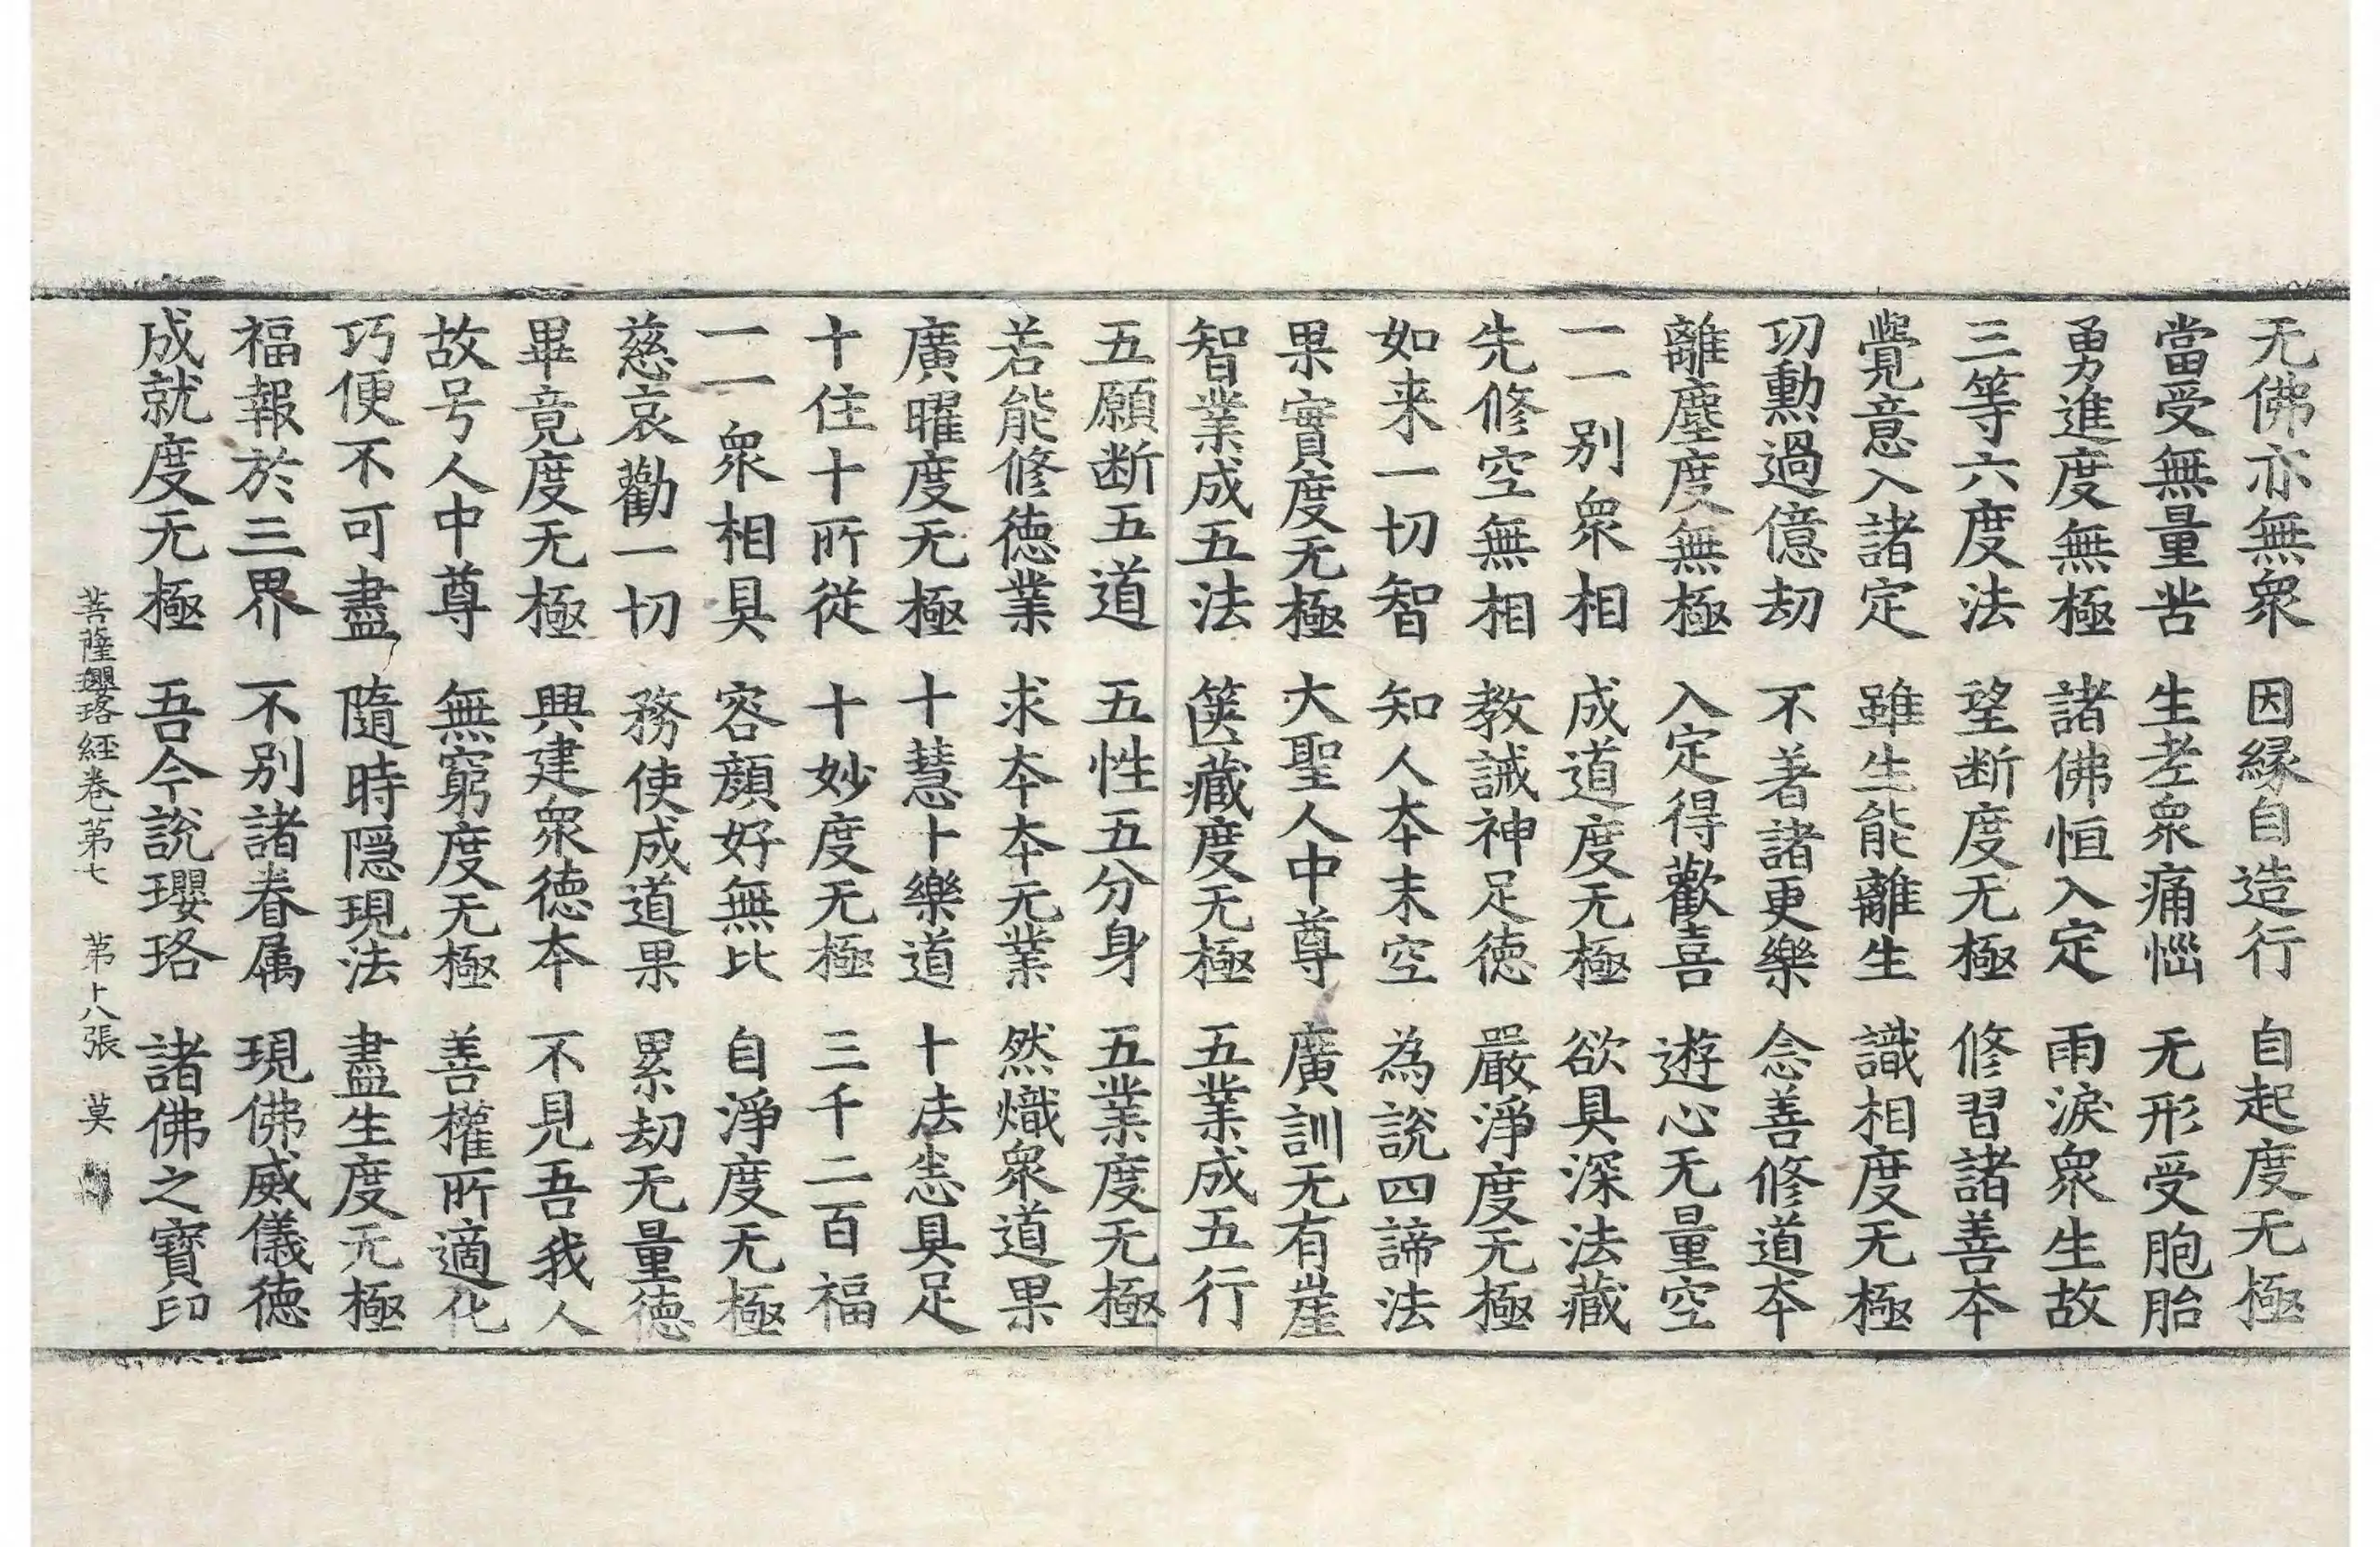 无佛亦無衆　因縁自造行　自起度无極
當受無量苦　生老衆痛惱　无形受胞胎
勇進度無極　諸佛恒入定　雨淚衆生故
三等六度法　望断度无極　修習諸善本
覺意入諸定　雖生能離生　識相度无極
功勳過億劫　不著諸更樂　念善修道夲
離塵度無極　入定得歡喜　遊心无量空
一一別衆相　成道度无極　欲具深法藏
先修空無相　教誡神足德　嚴淨度无極
如来一切智　知人夲末空　為說四諦法
果實度无極　大聖人中尊　廣訓无有崖
智業成五法　篋藏度无極　五業成五行
五願断五道　五性五分身　五業度无極
若能修德業　求夲夲无業　然熾衆道果
廣曜度无極　十慧十樂道　十法悉具足
十住十所從　十妙度无極　三千二百福
一一衆相具　容顔好無比　自淨度无極
慈哀勸一切　務使成道果　累劫无量德
畢竟度无極　興建衆德本　不見吾我人
故号人中尊　無窮度无極　善權所適化
巧便不可盡　隨時隠現法　盡生度无極
福報於三界　不別諸眷属　現佛威儀德
成就度无極　吾今說瓔珞　諸佛之寶印
菩薩瓔珞經卷第七　第十八張　莫